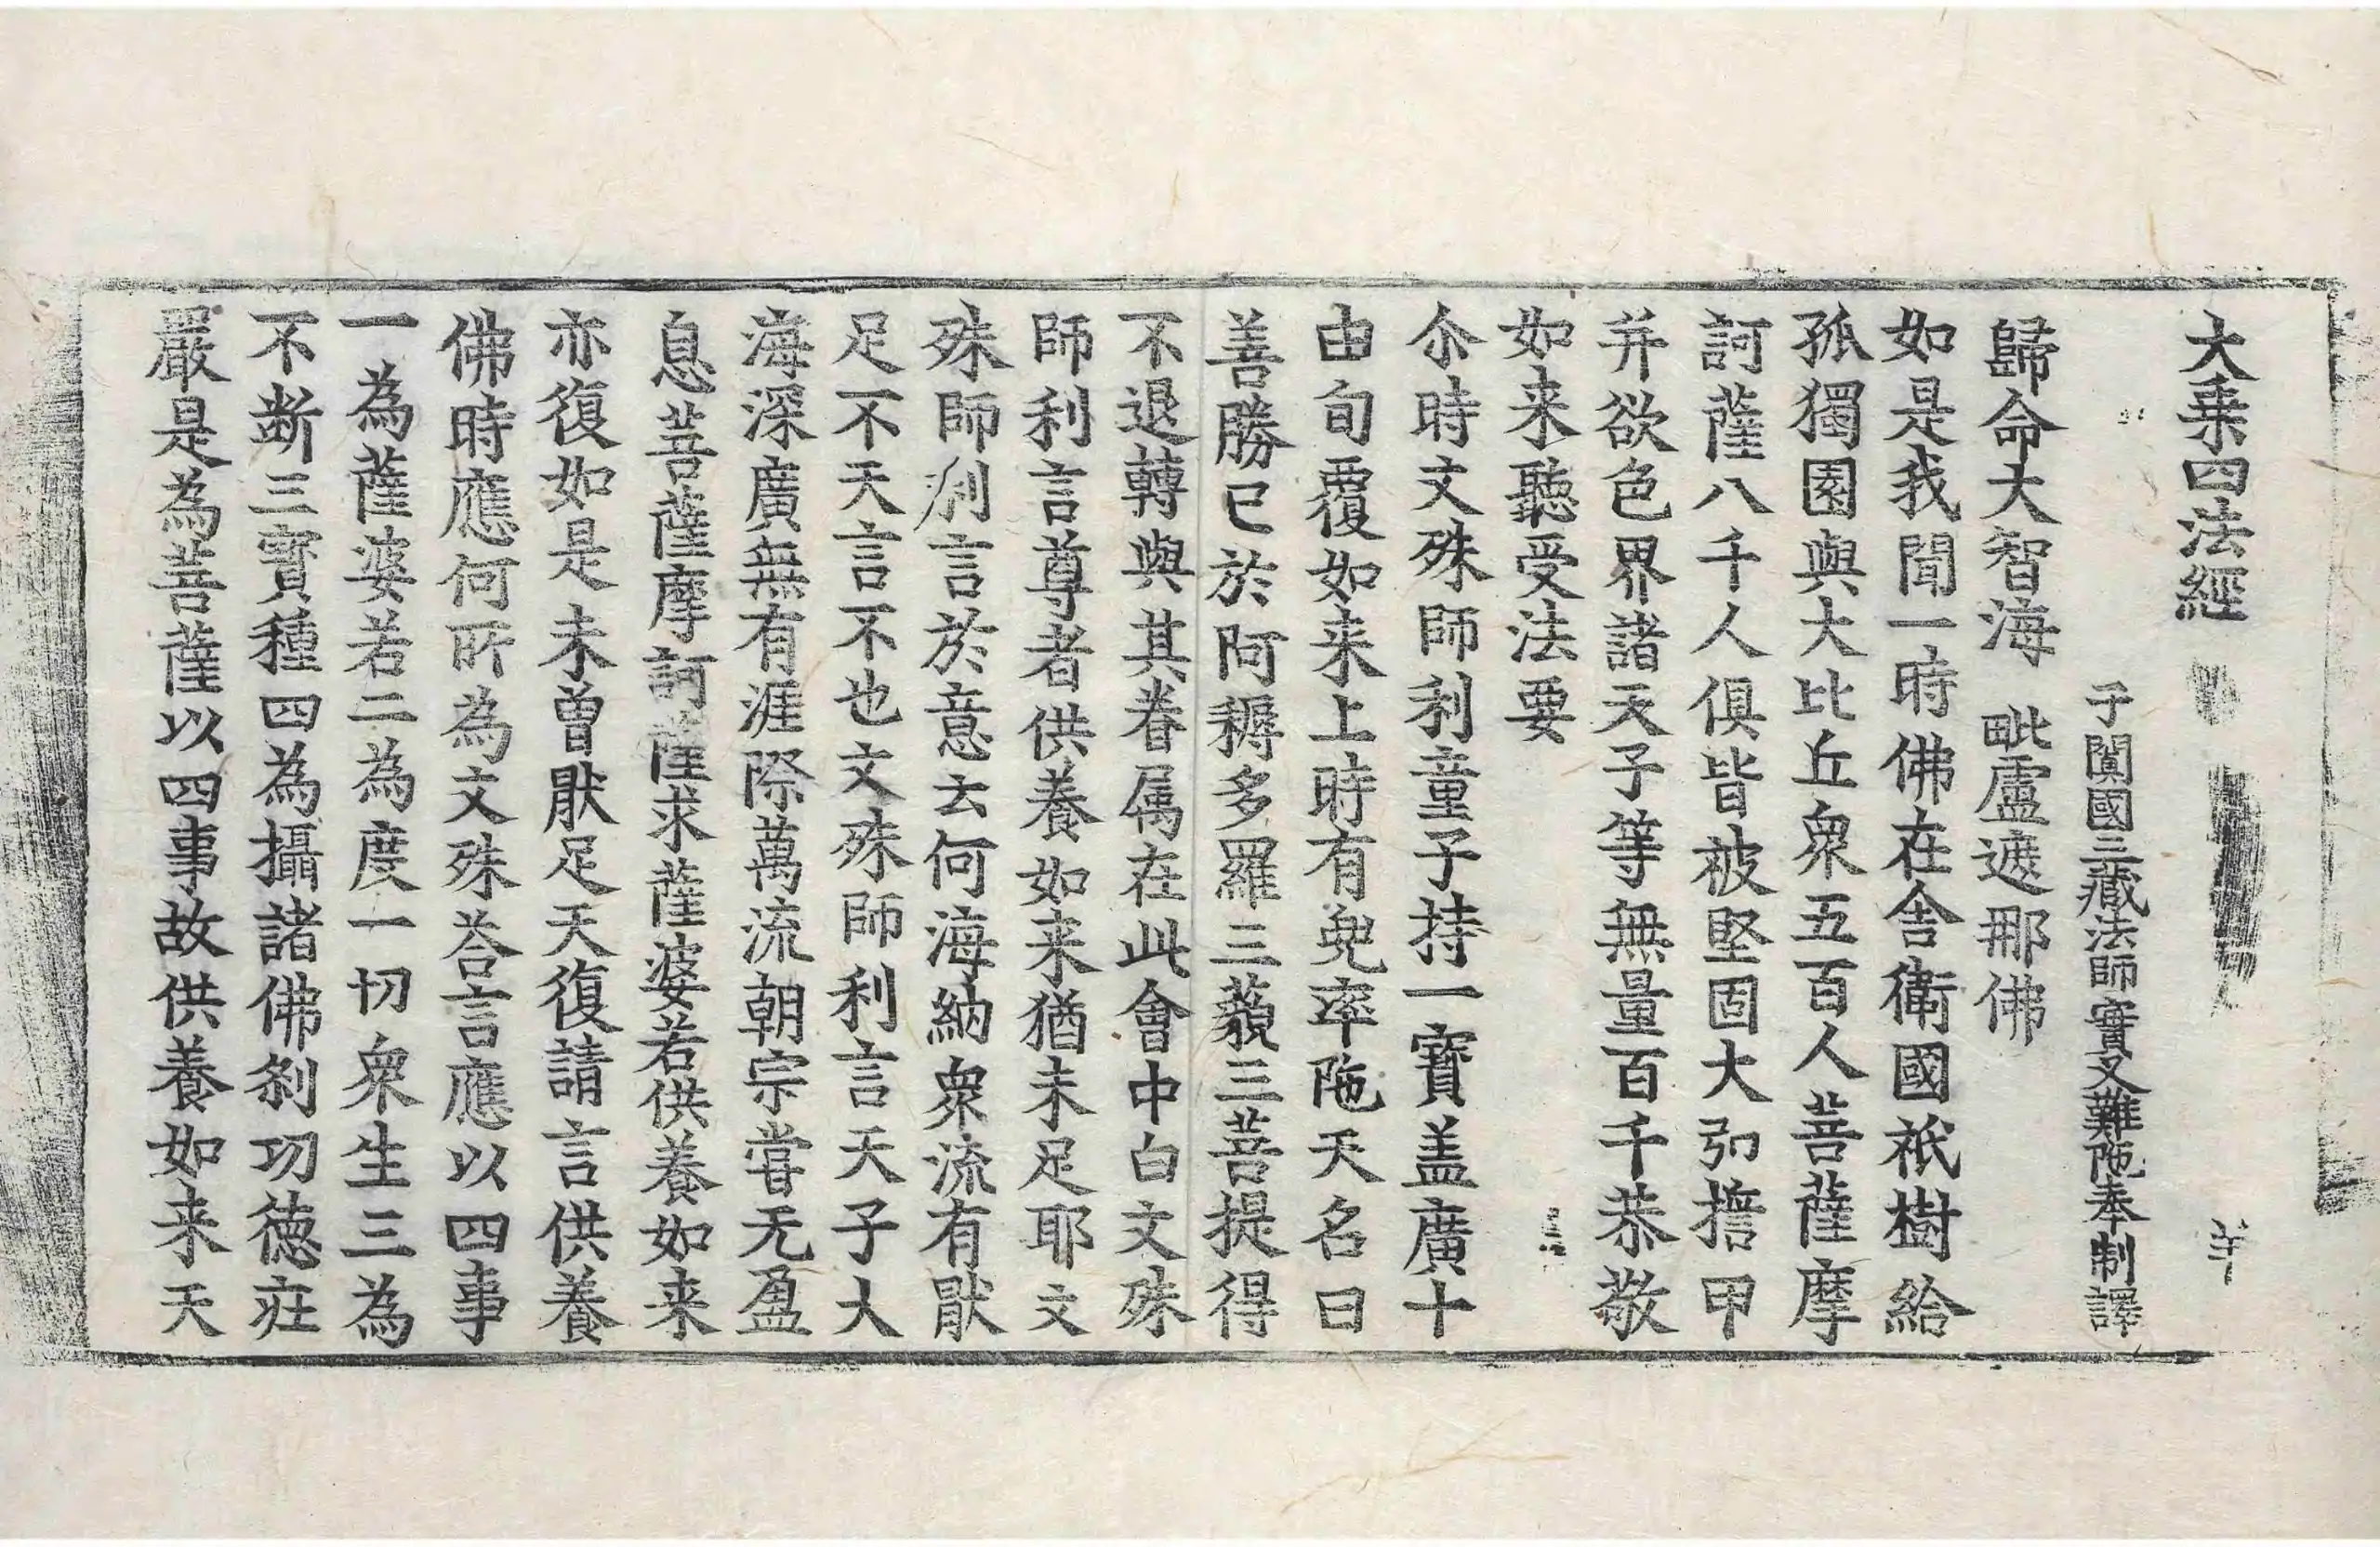 大乗四法經 羊
于闐國三藏法師實叉難陁奉制譯
歸命大智海 毗盧遮那佛
如是我聞一時佛在舎衛國祇樹給
孤獨園與大比丘衆五百人菩薩摩
訶薩八千人俱皆被堅固大弘擔甲
并欲色界諸天子等無量百千恭敬
如来聽受法要
尒時文殊師利童子持一寶盖廣十
由旬覆如来上時有兜率陁天名曰
善勝已於阿耨多羅三藐三菩提得
不退轉與其眷属在此會中白文殊
師利言尊者供養如来猶未足耶文
殊師利言於意云何海納衆流有猒
足不天言不也文殊師利言天子大
海深廣無有涯際萬流朝宗甞无盈
息菩薩摩訶薩求薩婆若供養如来
亦復如是未曽猒足天復請言供養
佛時應何所為文殊荅言應以四事
一為薩婆若二為度一切衆生三為
不断三寳種四為攝諸佛刹功徳莊
嚴是為菩薩以四事故供養如来天